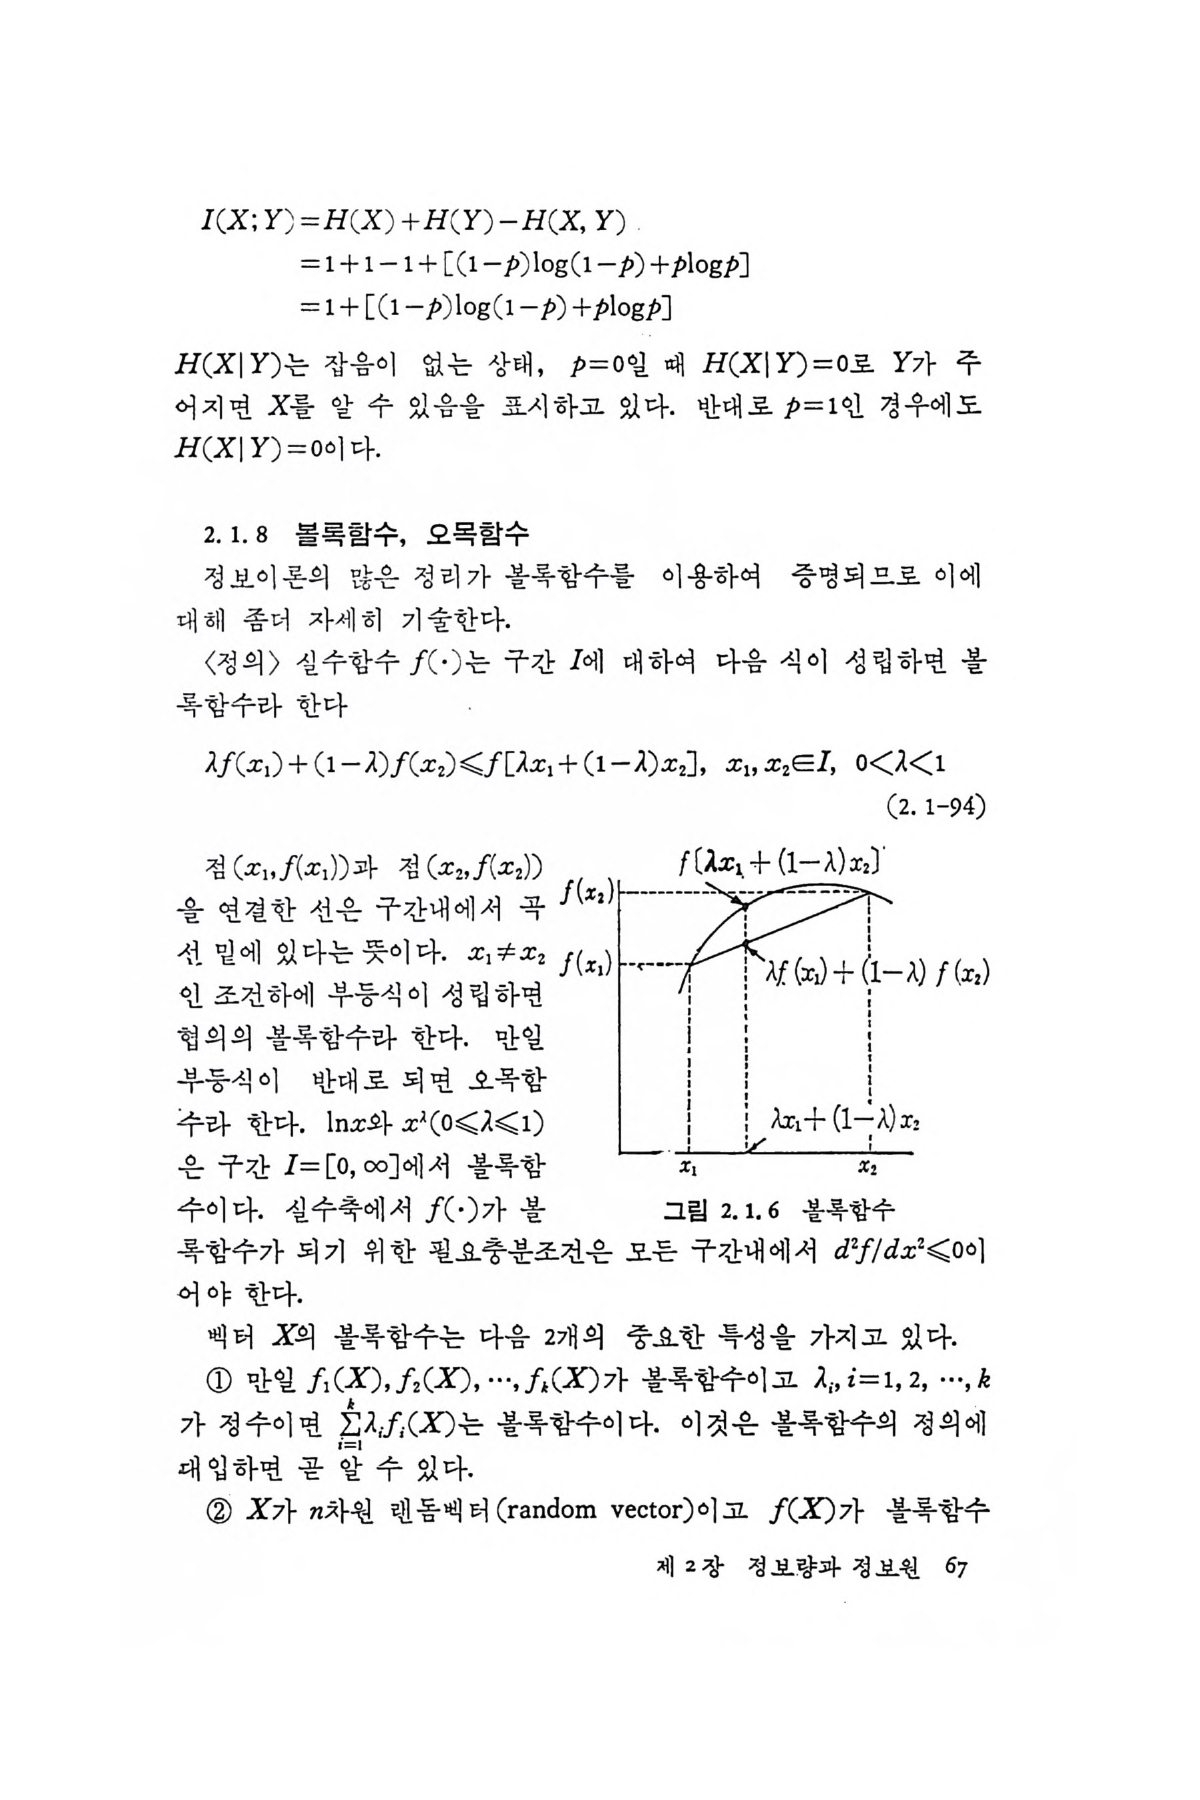 I(X; Y)=H(X)+H(Y)−H(X, Y)
=1+1−1+[(1−p)log(1−p)+plogp]
=1+[(1−p)log(1−p)+plogp]
H(X|Y)는 잡음이 없는 상태, p=0일 때 H(X|Y)=0로 Y가 주
어지면 X를 알 수 있음을 표시하고 있다. 반대로 p=1인 경우에도
H(X|Y)=0이다.
2. 1. 8 볼록함수, 오목함수
정보이론의 많은 정리가 볼록함수를 이용하여 증명되므로 이에
대해 좀더 자세히 기술한다.
〈정의〉 실수함수 f(·)는 구간 I에 대하여 다음 식이 성립하면 볼
록함수라 한다
λf(x₁)+(1−λ)f(x₂)≤f[λx₁+(1−λ)x₂], x₁, x₂∈I, 0<λ<1
(2. 1-94)
점(x₁, f(x₁))과 점(x₂, f(x₂))
을 연결한 선은 구간내에서 곡
선 밑에 있다는 뜻이다. x₁≠x₂
인 조건하에 부등식이 성립하면
협의의 볼록함수라 한다. 만일
부등식이 반대로 되면 오목함
수라 한다. lnx와 x^λ(0≤λ≤1)
은 구간 I=[0, ∞]에서 볼록함
수이다. 실수축에서 f(·)가 볼
f[λx₁+(1−λ)x₂]
f(x₂)
f(x₁)
λf(x₁)+(1−λ) f(x₂)
λx₁+(1−λ)x₂
x₁ x₂
그림 2. 1. 6 볼록함수
록함수가 되기 위한 필요충분조건은 모든 구간내에서 d²f/dx²≤0이
어야 한다.
벡터 X의 볼록함수는 다음 2개의 중요한 특성을 가지고 있다.
① 만일 f₁(X), f₂(X), ···, fₖ(X)가 볼록함수이고 λᵢ, i=1, 2, ···, k
가 정수이면 \sum_{i=1}^{k}λᵢfᵢ(X)는 볼록함수이다. 이것은 볼록함수의 정의에
대입하면 곧 알 수 있다.
② X가 n차원 랜덤벡터(random vector)이고 f(X)가 볼록함수
제 2 장 정보량과 정보원 67